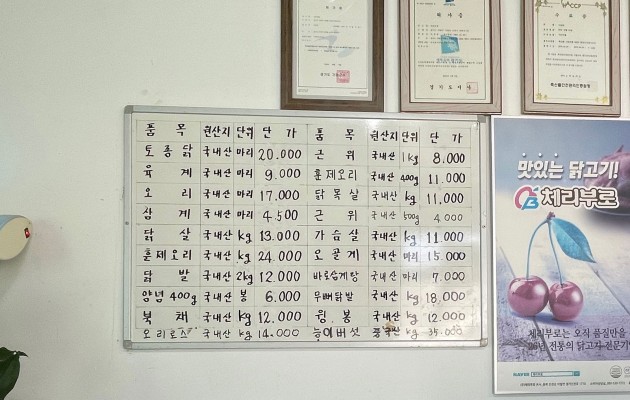 품 목 원산지 단위 단 가 품 목 원산지 단위 단 가
토종닭 국내산 마리 20.000 근 위 국내산 1kg 8.000
육 계 국내산 마리 9.000 훈제오리 국내산 400g 11.000
오 리 국내산 마리 17.000 닭목살 국내산 kg 11,000
삼 계 국내산 마리 4.500 근 위 국내산 500g 4.000
닭 살 국내산 kg 13.000 가슴살 국내산 kg 11.000
훈제오리 국내산 kg 24.000 오골계 국내산 마리 15.000
닭 발 국내산 2kg 12.000 바로삼계탕 국내산 마리 7.000
양념 400g 국내산 봉 6.000 무뼈닭발 국내산 kg 18,000
북 채 국내산 kg 12.000 윙.봉 국내산 kg 12.000
오리로스 국내산 kg 14.000 능이버섯 kg 35.000
맛있는 닭고기!
체리부로
체리부로는 오직 품질만을
전통의 닭고기 전문기